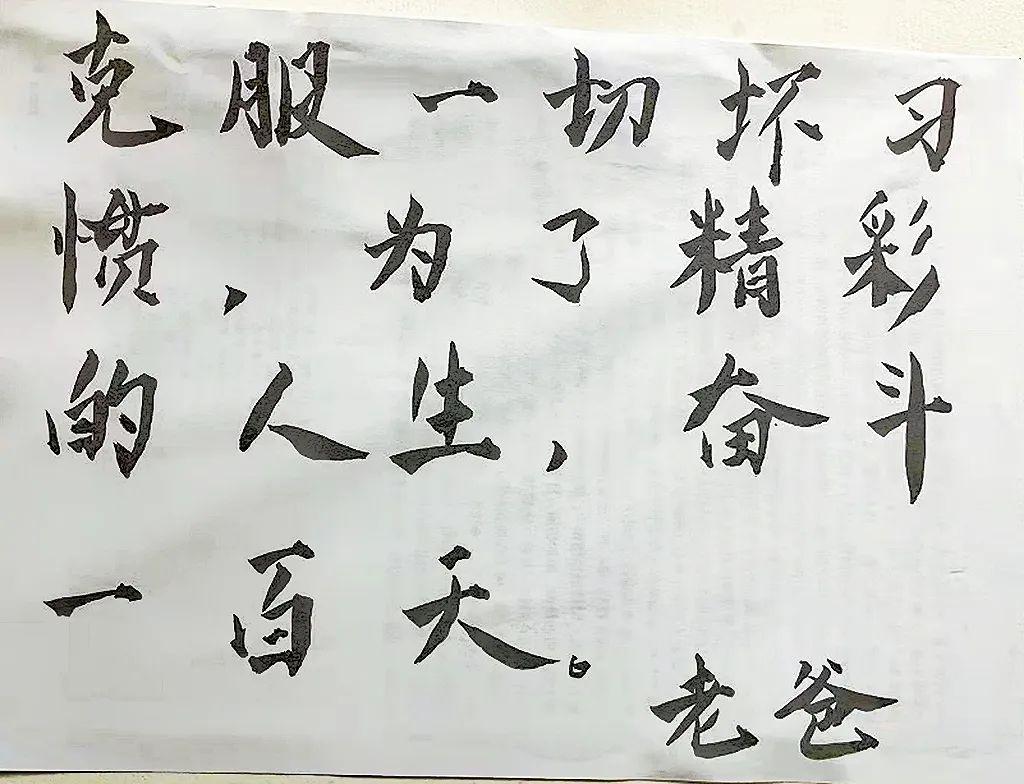 克服一切坏习
惯，为了精彩
的人生，奋斗
一百天。
老爸